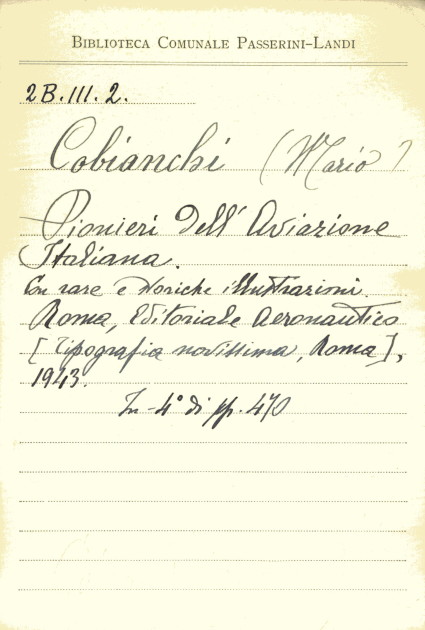 BIBLIOTECA COMUNALE PASSERINI-LANDI
2B.III.2.
Cobianchi (Mario)
Pionieri dell'Aviazione
Italiana.
Con rare e storiche illustrazioni.
Roma, Editoriale Aeronautico
[Tipografia novissima, Roma],
1943.
In-4° di pp. 470